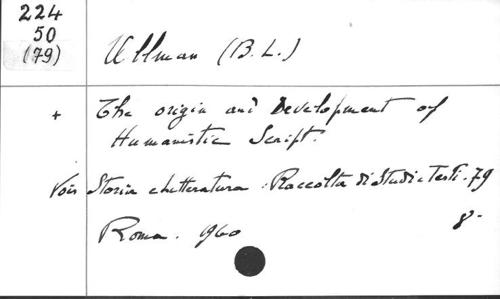 224
50
(79)
Ullman (B.L.)
+ The origin and Development of
Humanistic Script.
Voir Storia e letteratura. Raccolta di Studi e Testi. 79
Roma. 960
8-